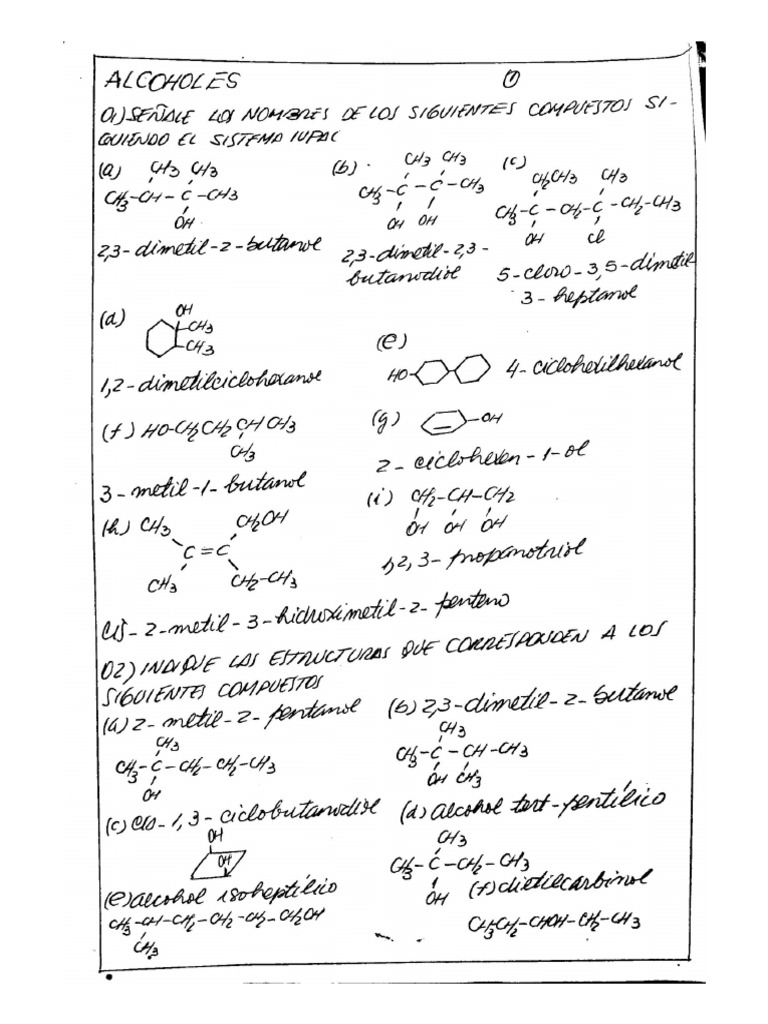 ALCOHOLES ①
01) SEÑALE LOS NOMBRES DE LOS SIGUIENTES COMPUESTOS SI-
GUIENDO EL SISTEMA IUPAC
(a) CH3 CH3
CH3-CH-C-CH3
OH
2,3-dimetil-2-butanol
(b) CH3 CH3
CH3-C-C-CH3
OH OH
2,3-dimetil-2,3-
butanodiol
(c) CH2CH3 CH3
CH3-C-CH2-C-CH2-CH3
OH Cl
5-cloro-3,5-dimetil
3-heptanol
(d) OH
CH3
CH3
1,2-dimetilciclohexanol
(e)
HO
4-ciclohexilhexanol
(f) HO-CH2CH2CHCH3
CH3
3-metil-1-butanol
(g) -OH
2-ciclohexen-1-ol
(h) CH3 CH2OH
C=C
CH3 CH2-CH3
cis-2-metil-3-hidroximetil-2-penteno
(i) CH2-CH-CH2
OH OH OH
1,2,3-propanotriol
02) INDIQUE LAS ESTRUCTURAS QUE CORRESPONDEN A LOS
SIGUIENTES COMPUESTOS
(a) 2-metil-2-pentanol
CH3
CH3-C-CH2-CH2-CH3
OH
(b) 2,3-dimetil-2-butanol
CH3
CH3-C-CH-CH3
OH CH3
(c) cis-1,3-ciclobutanodiol
OH
OH
(d) alcohol tert-pentílico
CH3
CH3-C-CH2-CH3
OH
(e) alcohol isoheptílico
CH3-CH-CH2-CH2-CH2-CH2OH
CH3
(f) dietilcarbinol
CH3CH2-CHOH-CH2-CH3